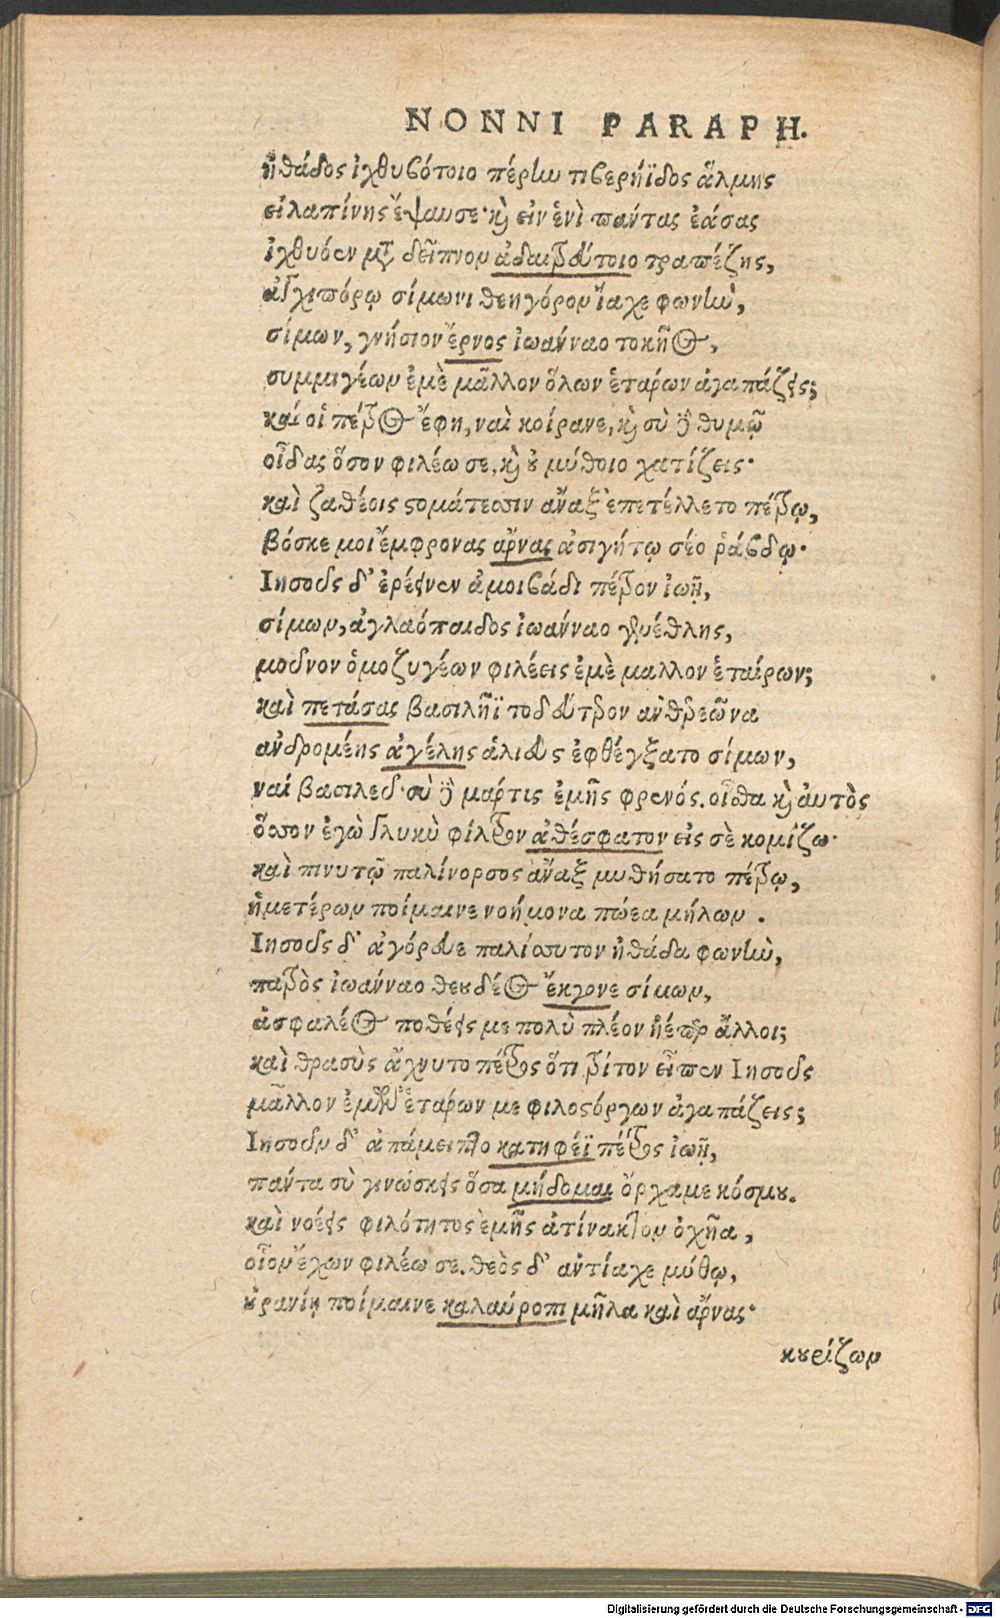 NONNI PARAPH.
ἠθάδος ἰχθυβότοιο πέριω τιβερηΐδος ἅλμης
εἰλαπίνης ἔψαυσε· καὶ εἰν ἑνὶ πάντας ἐάσας
ἰχθυόεν μετὰ δεῖπνον ἀδαιτρεύτοιο τραπέζης,
ἀγχιπόρῳ σίμωνι θεηγόρον ἴαχε φωνὴν,
σίμων, γνήσιον ἔρνος ἰωάνναο τοκῆος,
συμμιγέων ἐμὲ μᾶλλον ὅλων ἑτάρων ἀγαπάζεις;
καί οἱ πέτρος ἔφη, ναὶ κοίρανε, καὶ σὺ γὰρ θυμῷ
οἶδας ὅσον φιλέω σε, καὶ οὐ μύθοιο χατίζεις·
καὶ ζαθέοις στομάτεσσιν ἄναξ ἐπετέλλετο πέτρῳ,
βόσκε μοι ἔμφρονας ἄρνας ἀσιγήτῳ σέο ῥάβδῳ·
Ιησοῦς δ' ἐρέεινεν ἀμοιβάδι πέτρον ἰωῇ,
σίμων, ἀγλαόπαιδος ἰωάνναο γενέθλης,
μοῦνον ὁμοζυγέων φιλέεις ἐμὲ μαλλον ἑταίρων;
καὶ πετάσας βασιλῆϊ τὸ δεύτερον ἀνθερεῶνα
ἀνδρομέης ἀγέλης ἁλιεὺς ἐφθέγξατο σίμων,
ναί βασιλεῦ· σὺ γὰρ μάρτις ἐμῆς φρενός. οἶσθα καὶ ἀυτὸς
ὅσσον ἐγὼ γλυκὺ φίλτρον ἀθέσφατον εἰς σὲ κομίζω·
καὶ πινυτῷ παλίνορσος ἄναξ μυθήσατο πέτρῳ,
ἡμετέρων ποίμαινε νοήμονα πώεα μήλων .
Ιησοῦς δ' ἀγόρευε παλίσσυτον ἠθάδα φωνὴν,
πατρὸς ἰωάνναο θεουδέος ἔκγονε σίμων,
ἀσφαλέως ποθέεις με πολὺ πλέον ἠέπερ ἄλλοι;
καὶ θρασὺς ἄχνυτο πέτρος ὅτι τρίτον εἶπεν Ιησοῦς
μᾶλλον ἐμῶν ἑτάρων με φιλοστόργων ἀγαπάζεις;
Ιησοῦν δ' ἀπάμειπτο κατηφέϊ πέτρος ἰωῇ,
πάντα σὺ γινώσκεις ὅσα μήδομαι ὄρχαμε κόσμου.
καὶ νοέεις φιλότητος ἐμῆς ἀτίνακτον ὀχῆα,
οἷον ἔχων φιλέω σε. θεὸς δ' ἀντίαχε μύθῳ,
οὐρανίῃ ποίμαινε καλαύροπι μῆλα καὶ ἄρνας·
κουρίζων
Digitalisierung gefördert durch die Deutsche Forschungsgemeinschaft - DFG